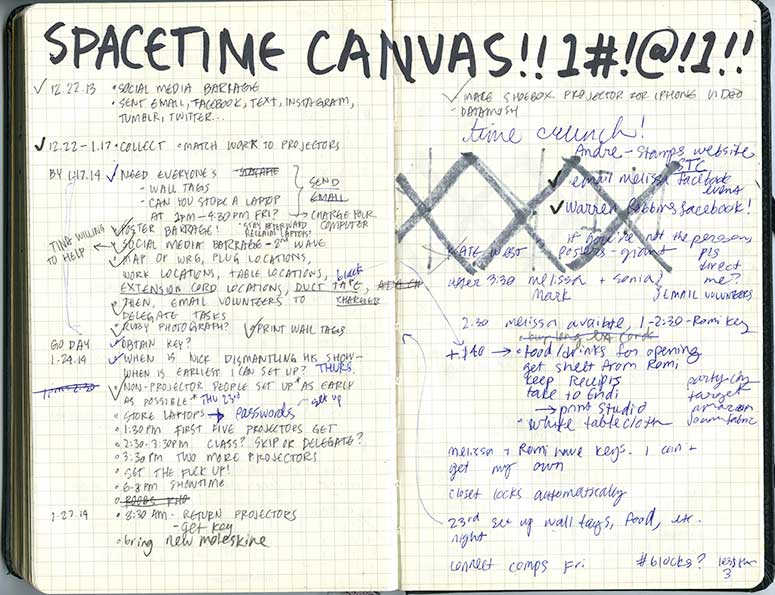 SPACETIME CANVAS!! 1#!@!1!!
12.22.13 • SOCIAL MEDIA BARRAGE
• SENT EMAIL, FACEBOOK, TEXT, INSTAGRAM,
TUMBLR, TWITTER...
12.22 - 1.17 • COLLECT • MATCH WORK TO PROJECTORS
BY 1.17.14 NEED EVERYONE'S
- WALL TAGS
- CAN YOU STORE A LAPTOP
AT 2PM - 4:30PM FRI?
SEND
EMAIL
→ CHARGE YOUR
COMPUTER
TINA WILLING
TO HELP
POSTER BARRAGE!
*STAY AFTERWARD
RECLAIM LAPTOPS!
SOCIAL MEDIA BARRAGE - 2ND WAVE
MAP OF WRG, PLUG LOCATIONS,
WORK LOCATIONS, TABLE LOCATIONS, black
EXTENSION CORD LOCATIONS, DUCT TAPE,
THEN, EMAIL VOLUNTEERS TO CHARGER
DELEGATE TASKS
RUBY PHOTOGRAPH? PRINT WALL TAGS
GO DAY OBTAIN KEY?
1.24.14 WHEN IS NICK DISMANTLING HIS SHOW -
WHEN IS EARLIEST I CAN SET UP? THURS.
NON-PROJECTOR PEOPLE SET UP* AS EARLY
AS POSSIBLE * THU 23rd set up
• STORE LAPTOPS → passwords
• 1:30PM FIRST FIVE PROJECTORS GET
• 2:30-3:30PM CLASS? SKIP OR DELEGATE?
• 3:30PM TWO MORE PROJECTORS
• SET THE FUCK UP!
• 6-8PM SHOWTIME
1.27.14 • 8:30AM - RETURN PROJECTORS
- get key
• bring new moleskine
MAKE SHOEBOX PROJECTOR FOR IPHONE VIDEO
- DATAMOSH
time crunch!
Andre - Stamps website
email melissa facebook
event
Warren Robbins facebook!
if you're not the person,
pls
direct
me?
GATE WEST posters - grant
after 3:30 melissa + sonia,
Mark
EMAIL VOLUNTEERS
2:30 melissa availble, 1-2:30 - Romi key
+ $40 → • food/drinks for opening
get sheet from Romi
keep Receipts
take to Endi
→ print studio
• White tablecloth
party city
target
amazon
Joann fabric
melissa + Romi have keys. I can't
get my own
closet locks automatically
23rd set up wall tags, food, etc.
night
connect comps Fri
# blocks? less than
3